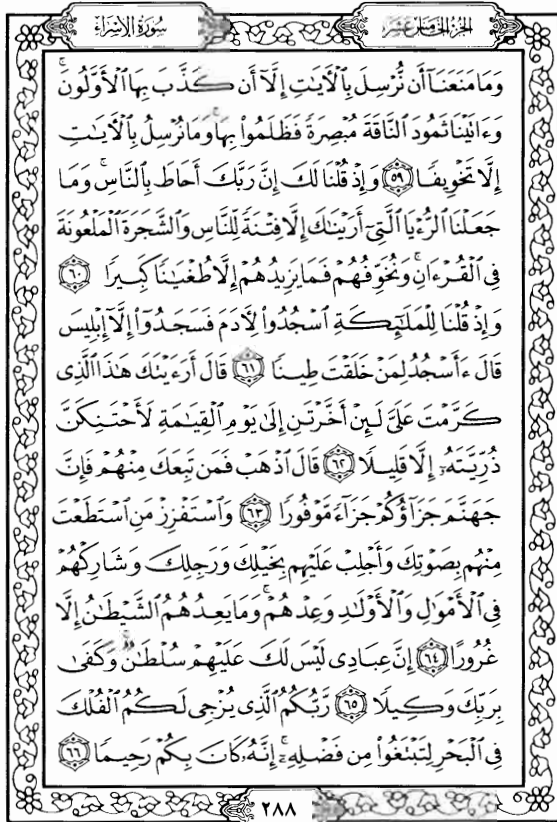 الجزء الخامس عشر
سورة الإسراء
وَمَا مَنَعَنَآ أَن نُّرْسِلَ بِٱلْأَيَٰتِ إِلَّآ أَن كَذَّبَ بِهَا ٱلْأَوَّلُونَۚ
وَءَاتَيْنَا ثَمُودَ ٱلنَّاقَةَ مُبْصِرَةً فَظَلَمُوا۟ بِهَاۚ وَمَا نُرْسِلُ بِٱلْأَيَٰتِ
إِلَّا تَخْوِيفًا ٥٩ وَإِذْ قُلْنَا لَكَ إِنَّ رَبَّكَ أَحَاطَ بِٱلنَّاسِۚ وَمَا
جَعَلْنَا ٱلرُّءْيَا ٱلَّتِىٓ أَرَيْنَٰكَ إِلَّا فِتْنَةً لِّلنَّاسِ وَٱلشَّجَرَةَ ٱلْمَلْعُونَةَ
فِى ٱلْقُرْءَانِۚ وَنُخَوِّفُهُمْ فَمَا يَزِيدُهُمْ إِلَّا طُغْيَٰنًا كَبِيرًا ٦٠
وَإِذْ قُلْنَا لِلْمَلَٰٓئِكَةِ ٱسْجُدُوا۟ لِأَدَمَ فَسَجَدُوٓا۟ إِلَّآ إِبْلِيسَ
قَالَ ءَأَسْجُدُ لِمَنْ خَلَقْتَ طِينًا ٦١ قَالَ أَرَءَيْتَكَ هَٰذَا ٱلَّذِى
كَرَّمْتَ عَلَىَّ لَئِنْ أَخَّرْتَنِ إِلَىٰ يَوْمِ ٱلْقِيَٰمَةِ لَأَحْتَنِكَنَّ
ذُرِّيَّتَهُۥٓ إِلَّا قَلِيلًا ٦٢ قَالَ ٱذْهَبْ فَمَن تَبِعَكَ مِنْهُمْ فَإِنَّ
جَهَنَّمَ جَزَآؤُكُمْ جَزَآءً مَّوْفُورًا ٦٣ وَٱسْتَفْزِزْ مَنِ ٱسْتَطَعْتَ
مِنْهُم بِصَوْتِكَ وَأَجْلِبْ عَلَيْهِم بِخَيْلِكَ وَرَجِلِكَ وَشَارِكْهُمْ
فِى ٱلْأَمْوَٰلِ وَٱلْأَوْلَٰدِ وَعِدْهُمْۚ وَمَا يَعِدُهُمُ ٱلشَّيْطَٰنُ إِلَّا
غُرُورًا ٦٤ إِنَّ عِبَادِى لَيْسَ لَكَ عَلَيْهِمْ سُلْطَٰنٌۚ وَكَفَىٰ
بِرَبِّكَ وَكِيلًا ٦٥ رَّبُّكُمُ ٱلَّذِى يُزْجِى لَكُمُ ٱلْفُلْكَ
فِى ٱلْبَحْرِ لِتَبْتَغُوا۟ مِن فَضْلِهِۦٓۚ إِنَّهُۥ كَانَ بِكُمْ رَحِيمًا ٦٦
٢٨٨